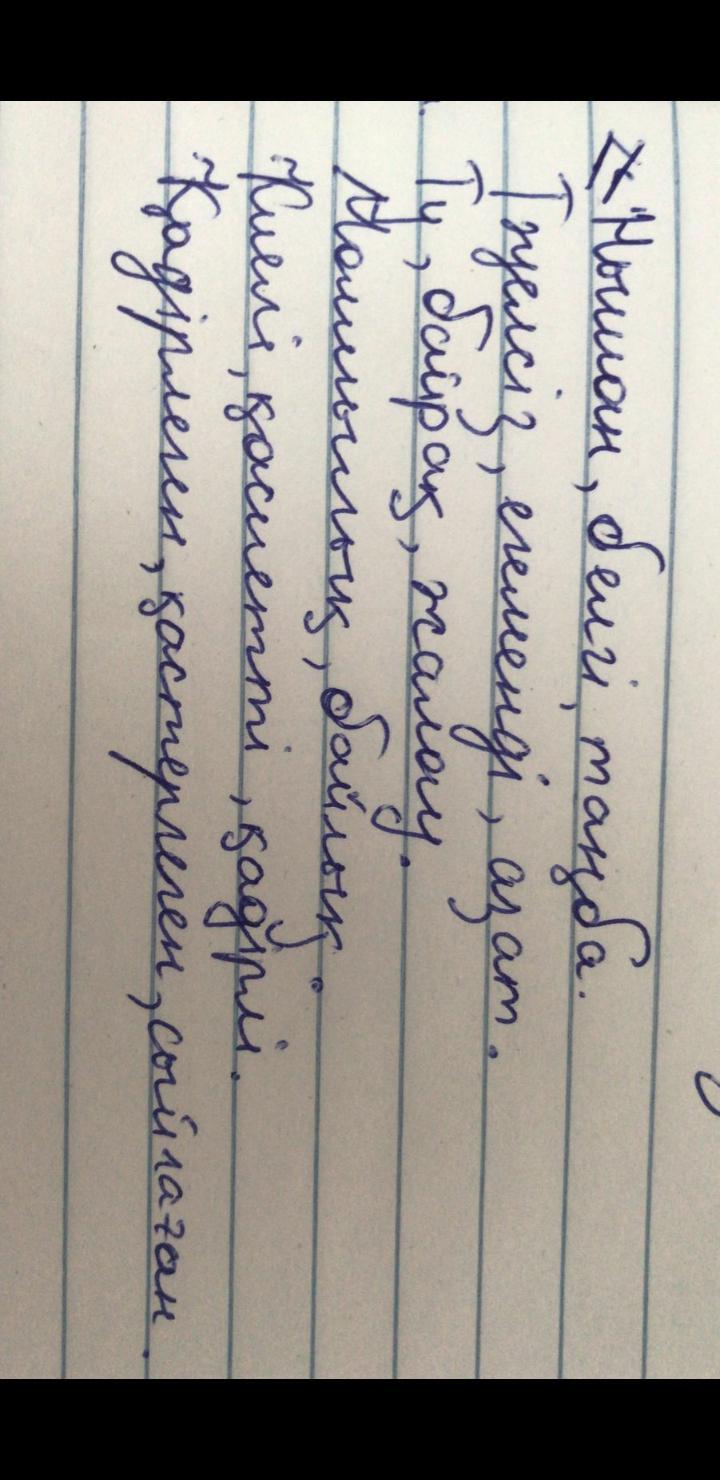 Нышан, белгі, таңба.
Тәуелсіз, егеменді, азат.
Ту, байрақ, жалау.
Молшылық, байлық.
Киелі, қасиетті, қадірлі.
Қадірлеген, қастерлеген, сыйлаған.